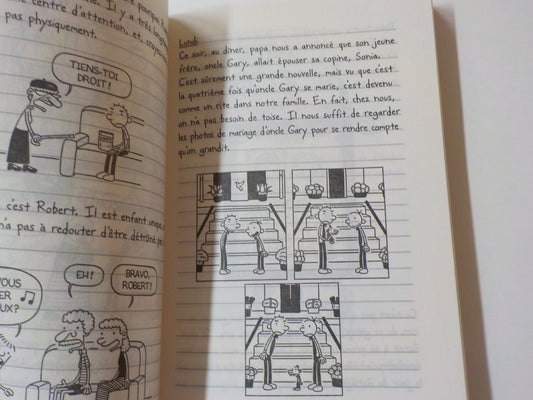 centre d'attention, et,
pas physiquement.
TIENS-TOI
DROIT!
c'est Robert. Il est enfant unique,
n'a pas à redouter d'être détrôné
EH!
BRAVO,
ROBERT!
Lundi
Ce soir, au dîner, papa nous a annoncé que son jeune
frère, oncle Gary, allait épouser sa copine, Sonia.
C'est sûrement une grande nouvelle, mais vu que c'est
la quatrième fois qu'oncle Gary se marie, c'est devenu
comme un rite dans notre famille. En fait, chez nous,
on n'a pas besoin de toise. Il nous suffit de regarder
les photos de mariage d'oncle Gary pour se rendre compte
qu'on grandit.